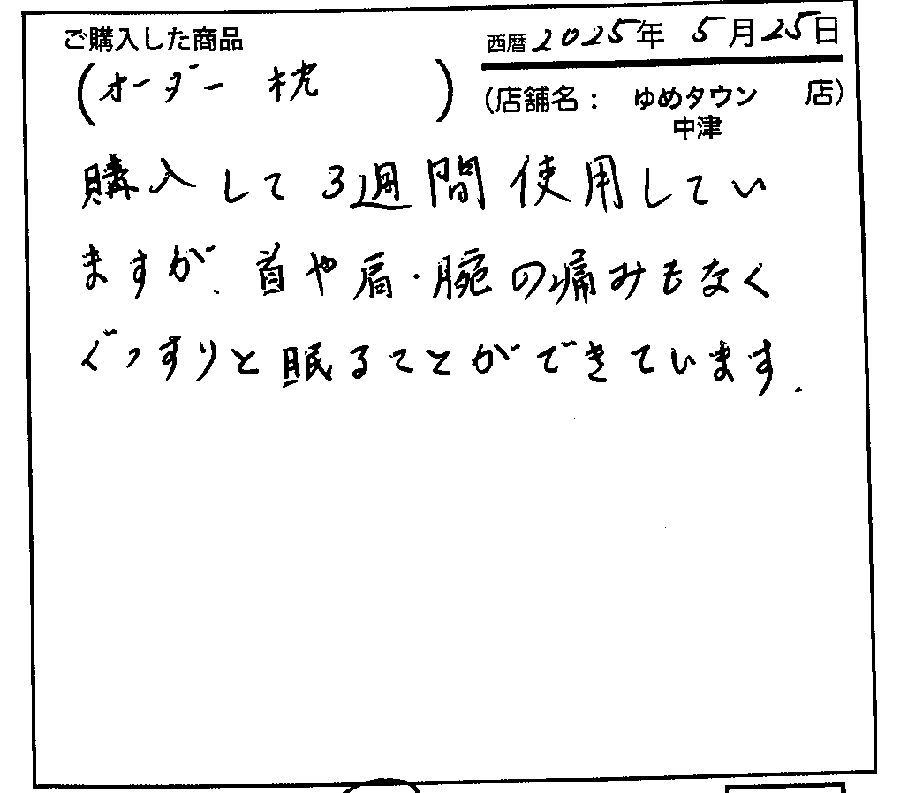 ご購入した商品
西暦2025年 5月25日
(オーダー枕)
(店舗名: ゆめタウン 店)
中津
購入して3週間使用してい
ますが、首や肩・腕の痛みもなく
ぐっすりと眠ることができています.